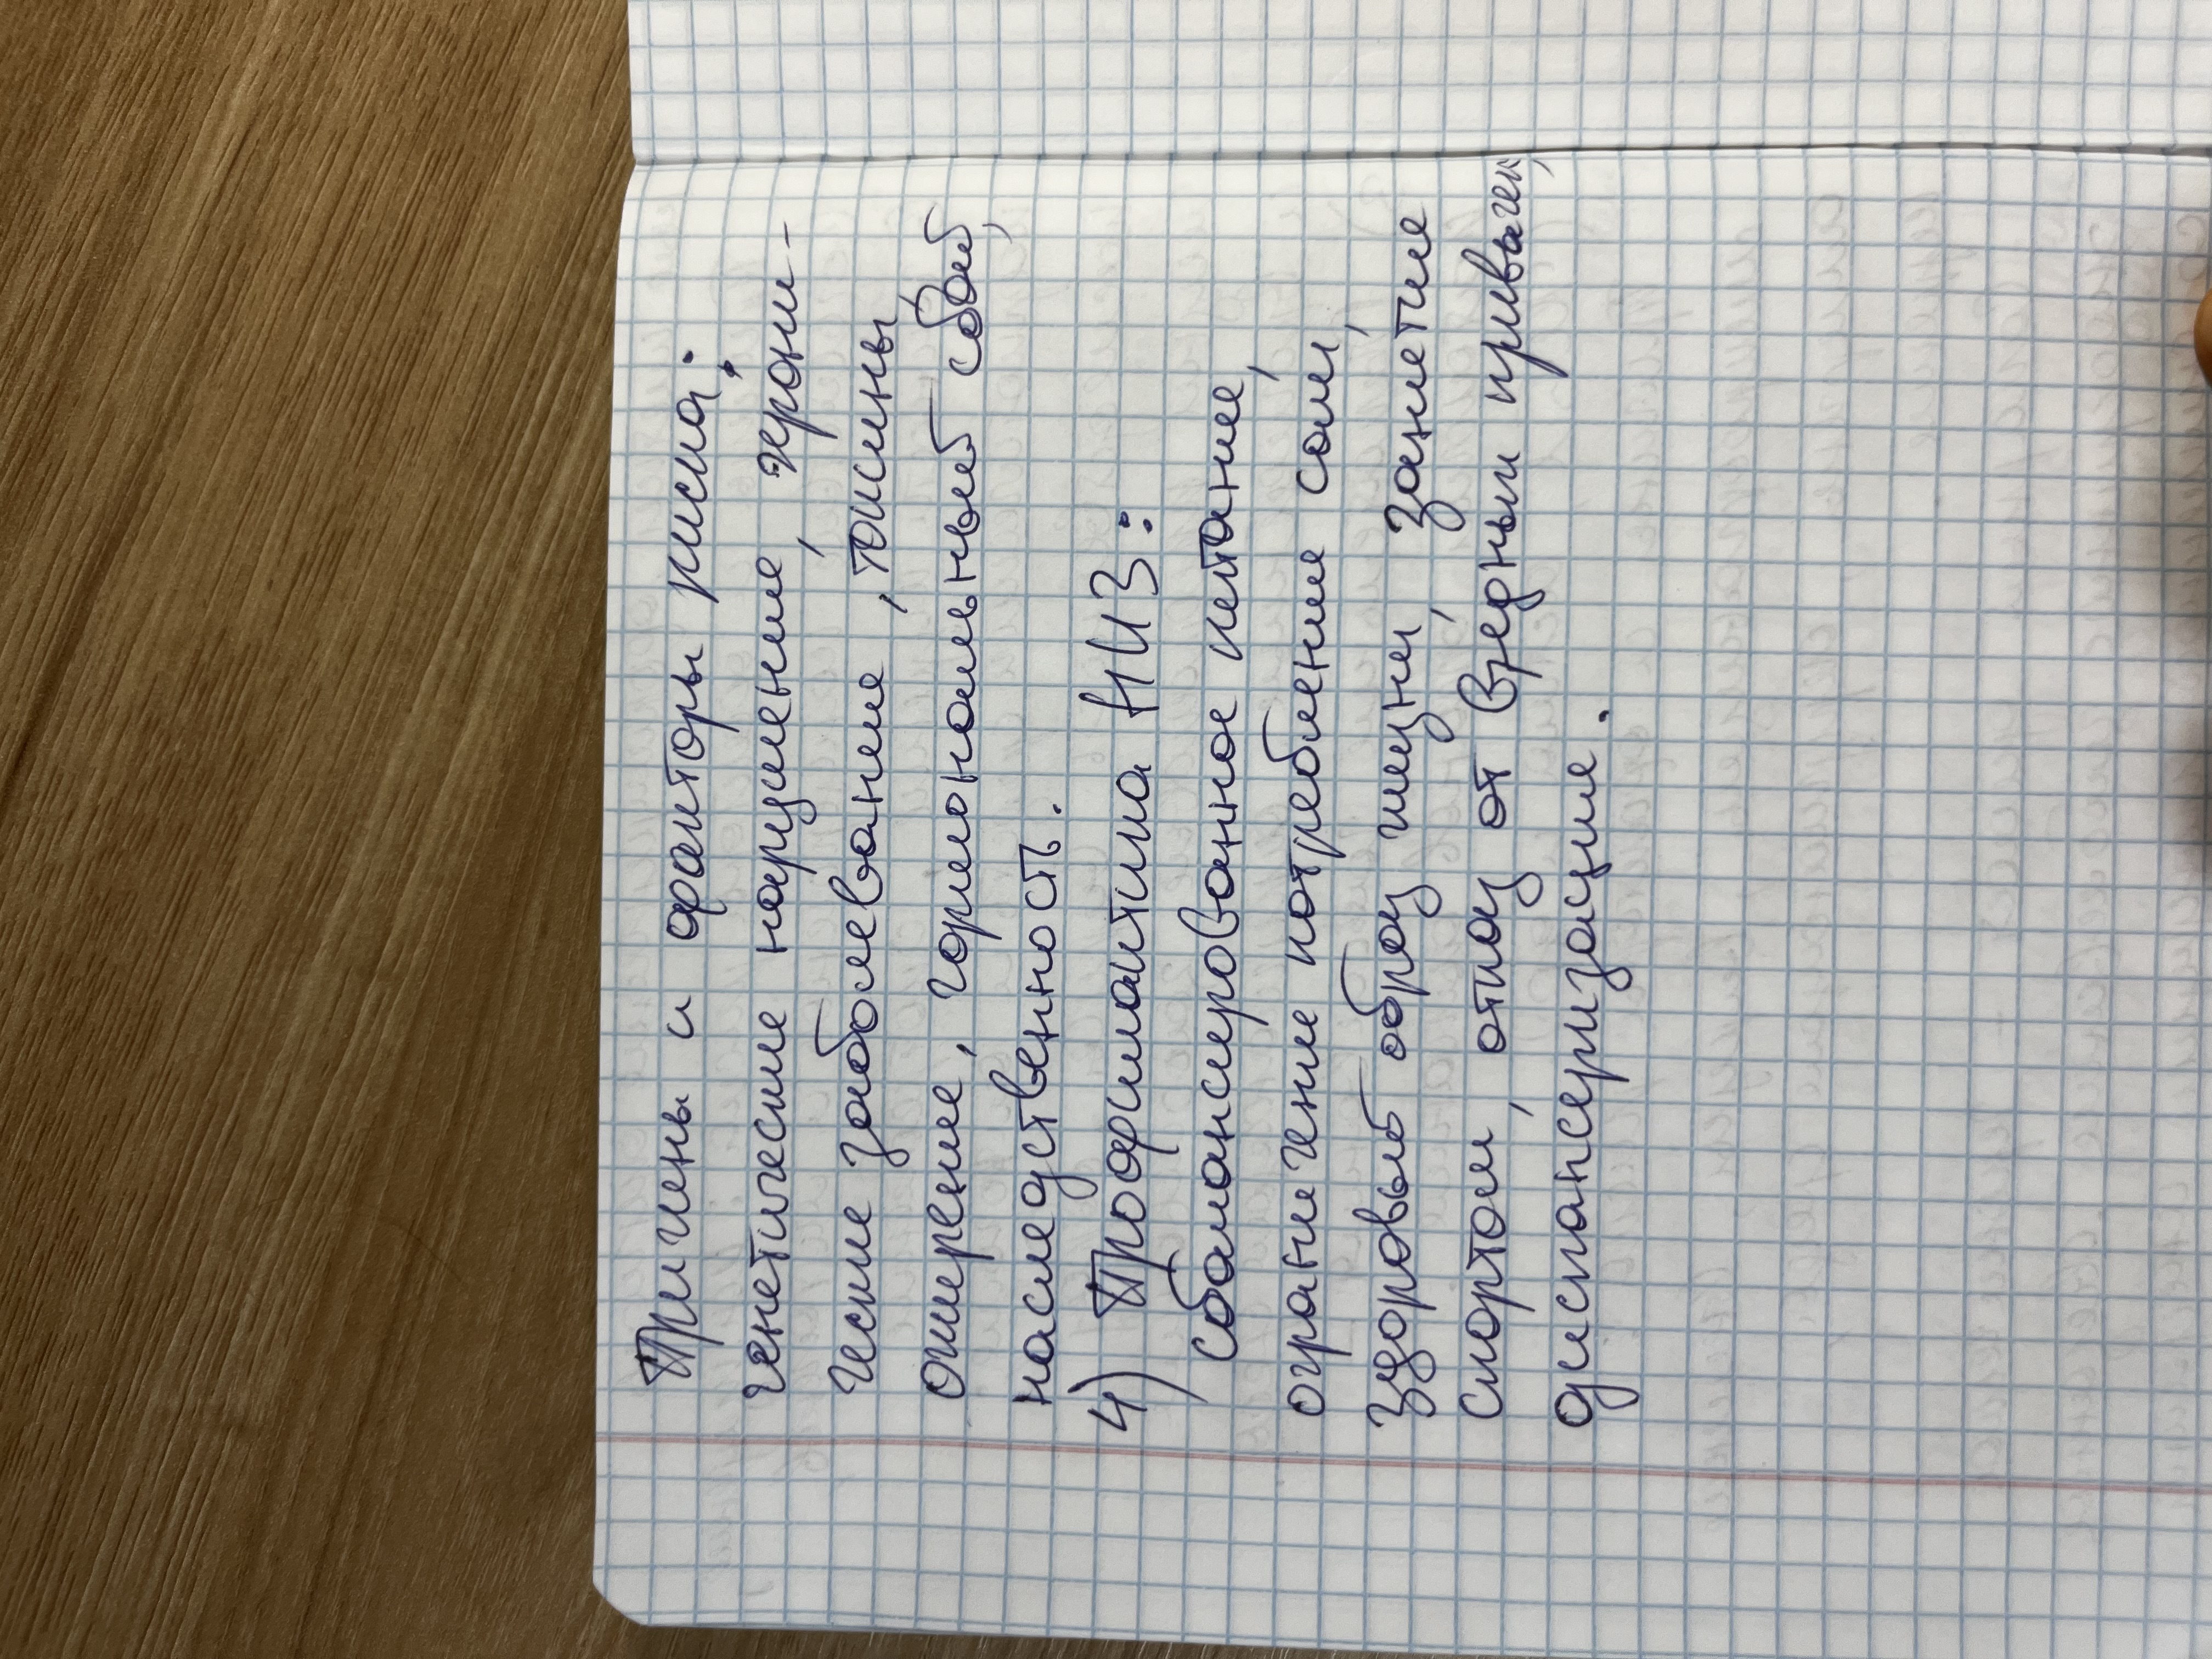 Причины и факторы риска:
генетические нарушение, хрони-
ческие заболевание, токсины
ожирение, гормональный сбой,
наследственность.
4) Профилактика НИЗ:
сбалансированное питание,
ограничение потребление соли,
здоровый образ жизни, занятие
спортом, отказ от вредных привычек,
диспансеризацие.